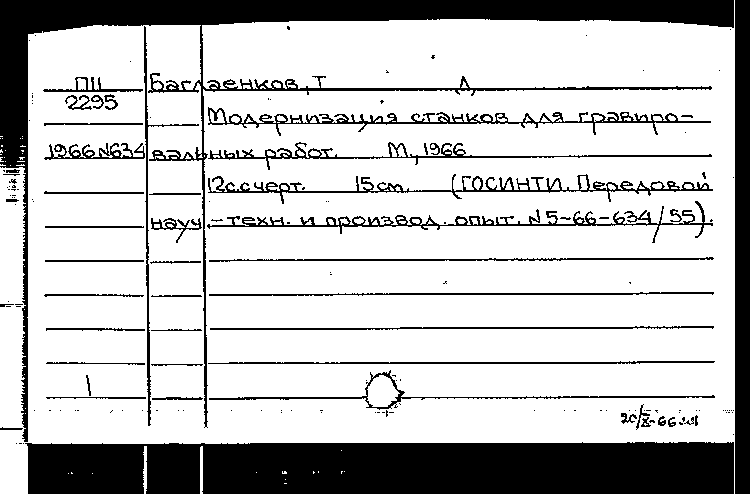 ПII Баглаенков, Т Д,
2295
Модернизация станков для гравиро-
1966 N634 вальных работ. М., 1966.
12с.счерт. 15см. (ГОСИНТИ. Передовой
науч.-техн. и производ. опыт. N5-66-634/55).
1
20/X-66